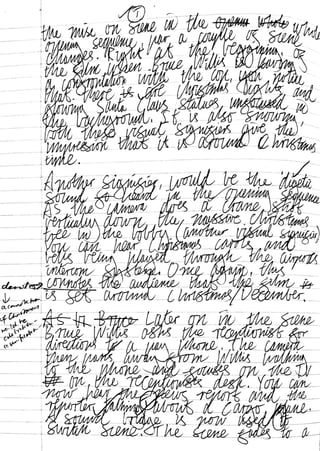 1
the mise on scene in the opening whole while
opening sequence, has a couple of scene
changes. Right at the beginning of
the film when Bruce Willis is having
a confrontation with the cop, you notice
that there is are Christmas lights and
glowing Santa Claus statues, in
the background. It is also snowing,
both these visual signifiers give the
impression that it is around Christmas
time.
Another signifier, would be the digetic
sound heard in the opening sequence
As the camera does a crane shot
vertically down, the massive Christmas
tree in the lobby (another visual signifier)
you can hear Christmas carols and
bells being played through the airports
intercom system. Once again, this
connotes the audience that the film
is set around Christmas/December.
denotes
a connotation
of Christmas
As Bruce Later on in the scene
Bruce Willis asks the receptionist for
directions to a pay phone. The camera
then pans away from Willis walking
to the phone and focuses on the TV
on the receptionists desk. You can
now hear the news report and the
reporter talking about a cargo plane.
A sound bridge is now used to
switch scene. The scene fades to a